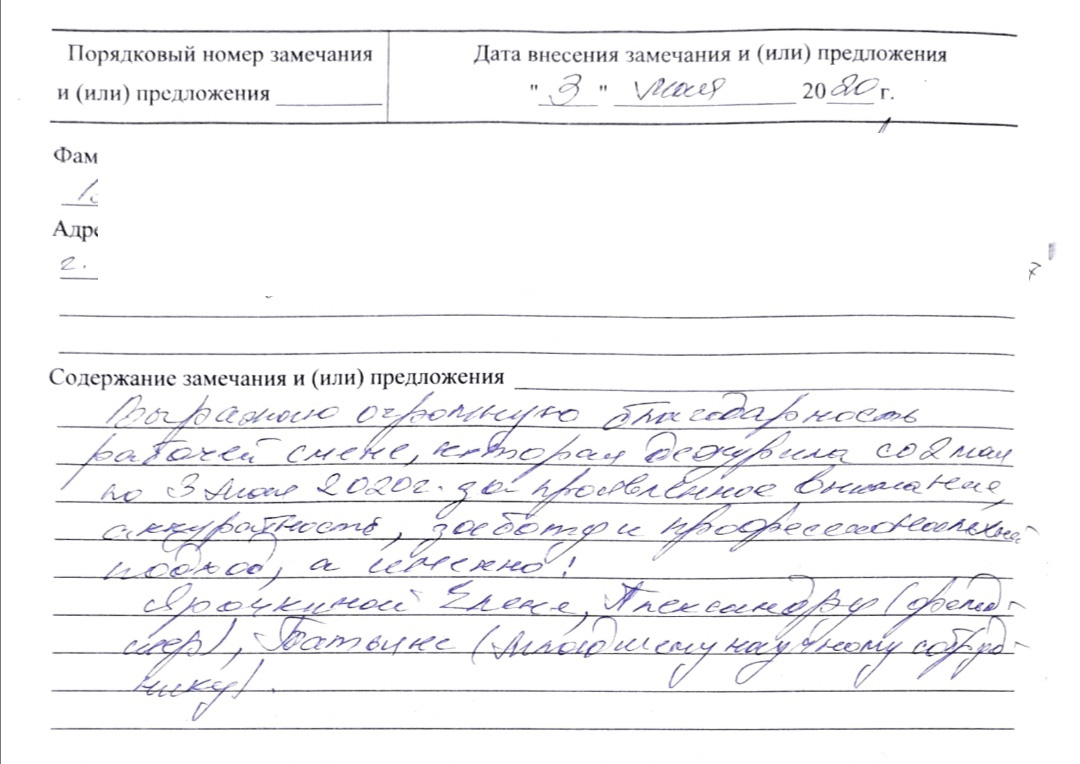 Порядковый номер замечания
и (или) предложения
Дата внесения замечания и (или) предложения
" 3 " мая 2020 г.
Фам
Адре
г.
Содержание замечания и (или) предложения
Выражаю огромную благодарность
рабочей смене, которая дежурила со 2 мая
по 3 мая 2020г. за проявленное внимание,
аккуратность, заботу и профессиональный
подход, а именно:
Ярочкиной Елене, Александру (фельд-
шер), Татьяне (младшему научному сотруд-
нику).